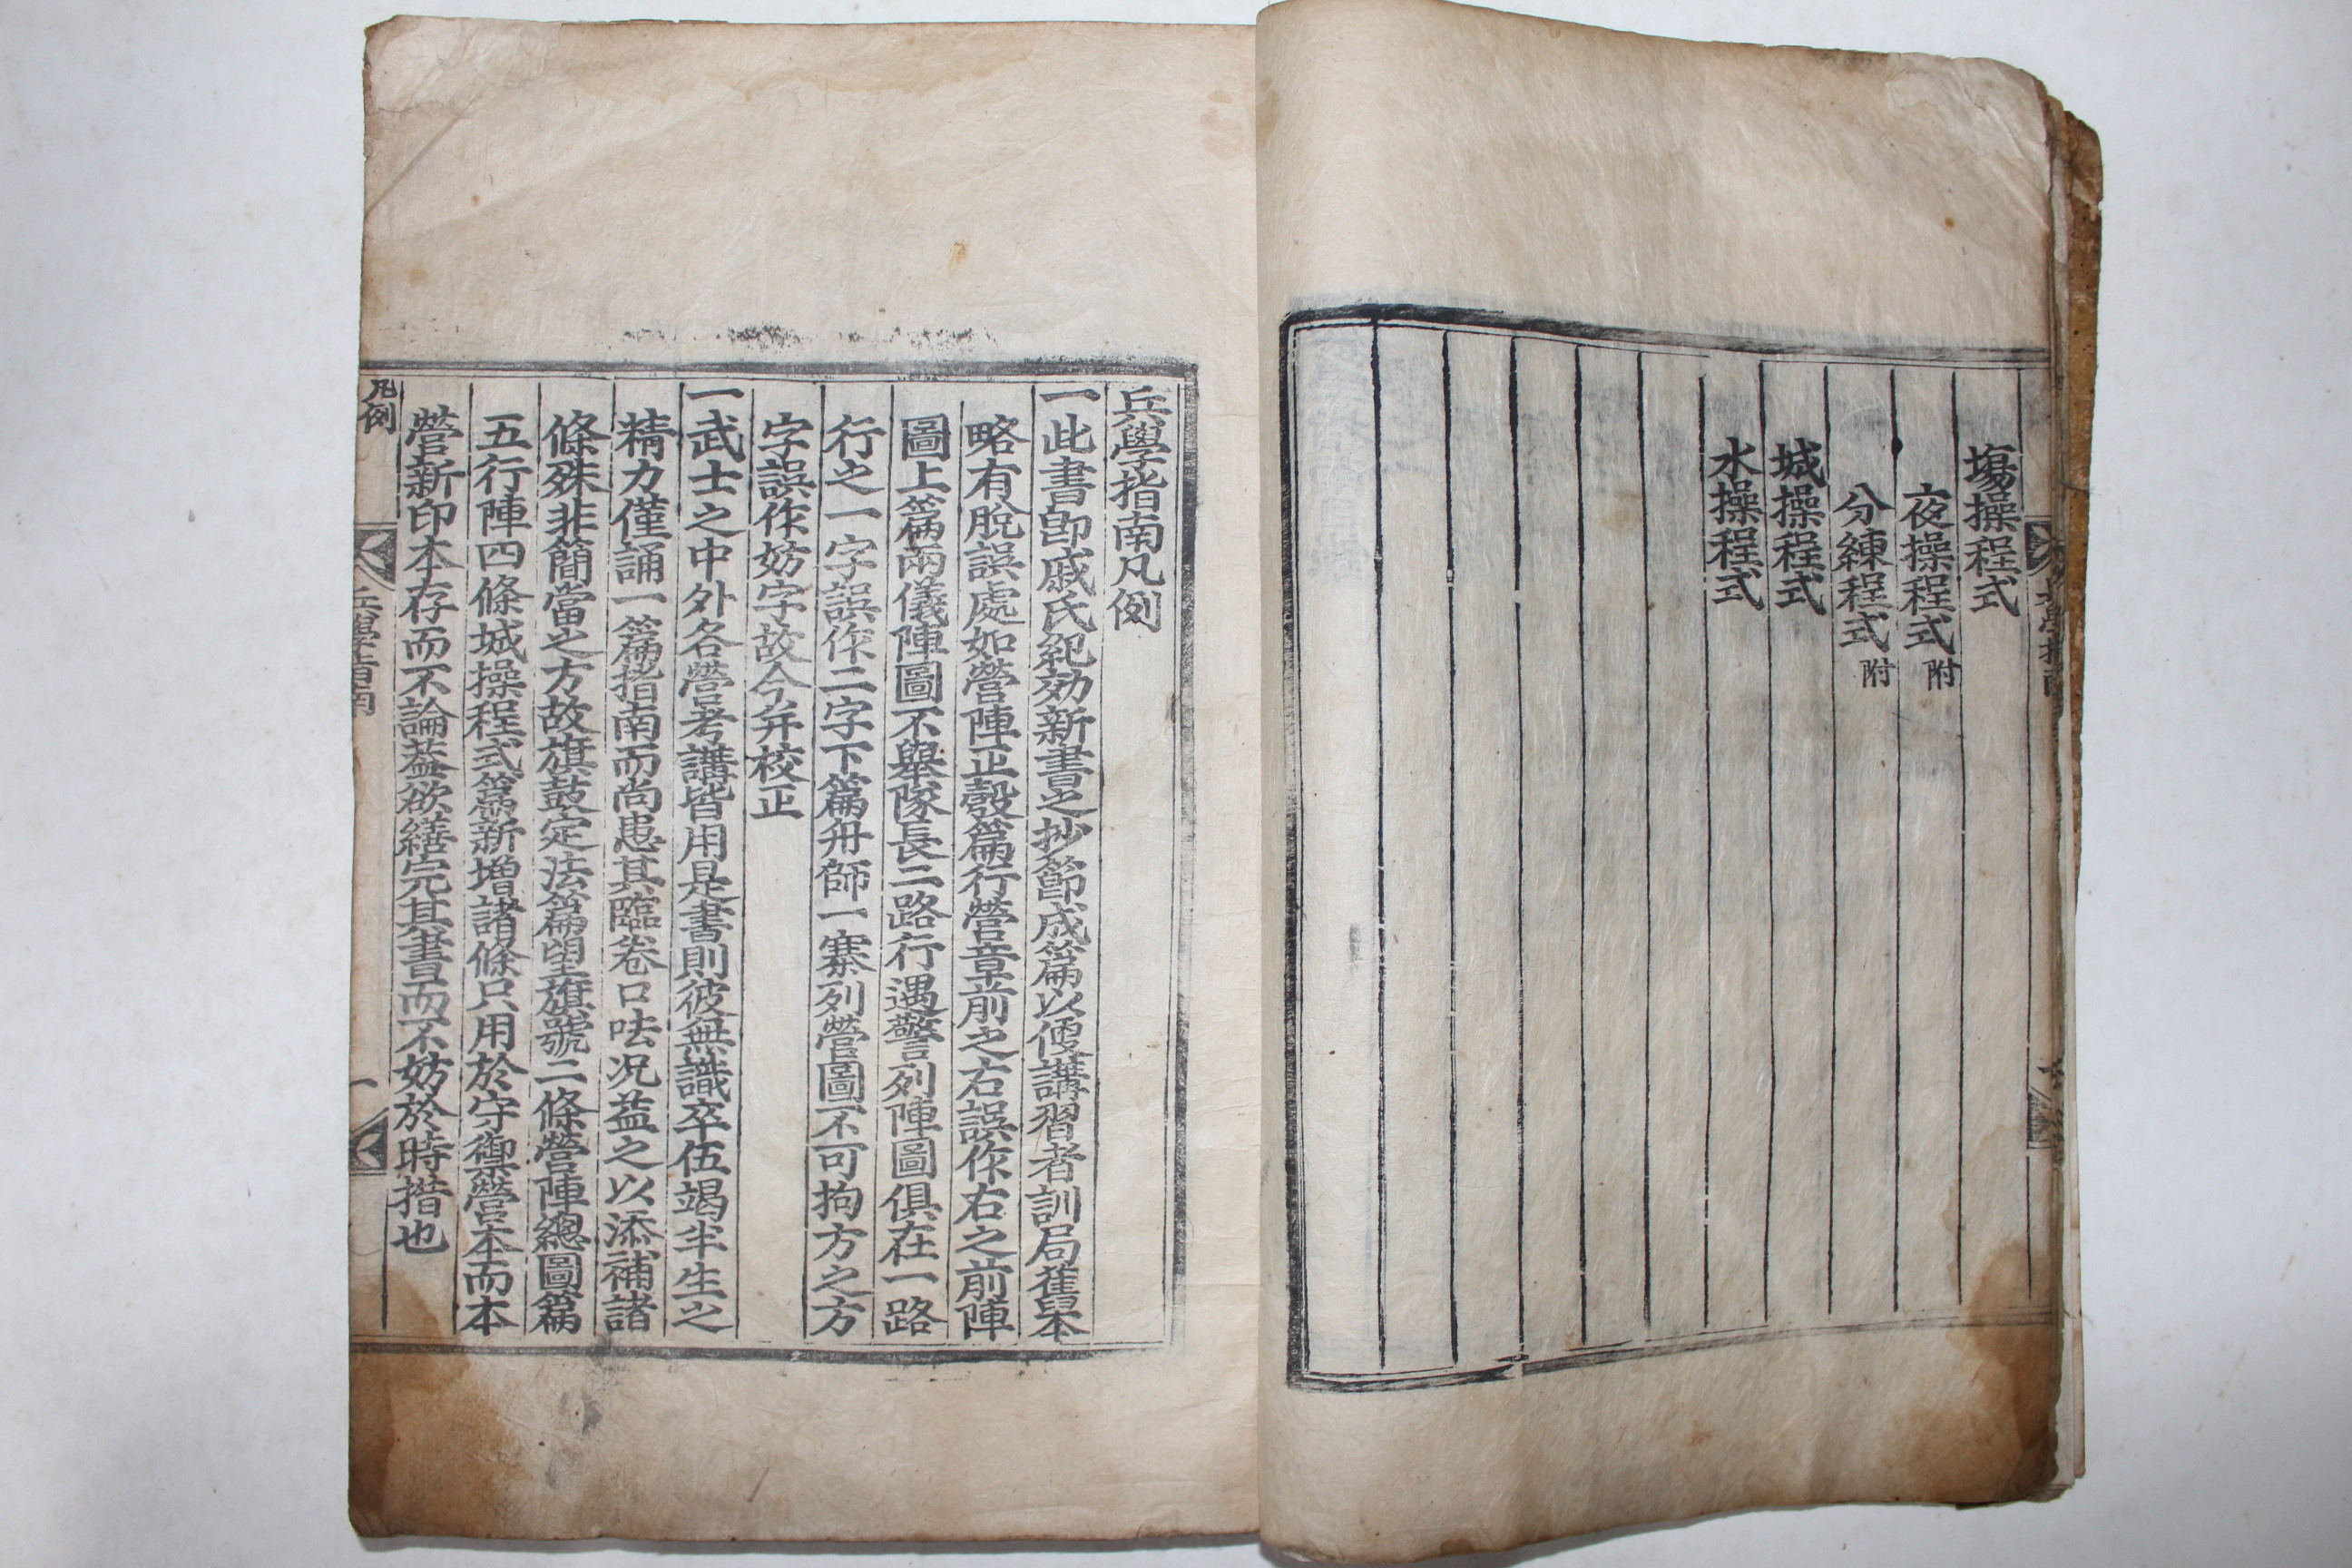 塲操程式
夜操程式 附
分練程式 附
城操程式
水操程式
兵學指南凡例
一此書卽戚氏紀効新書之抄節成篇以便講習者訓局舊本
略有脫誤處如營陣正彀篇行營章前之右誤作右之前陣
圖上篇兩儀陣圖不擧隊長二路行遇警列陣圖俱在一路
行之一字誤作二字下篇舟師一寨列營圖不可拘方之方
字誤作妨字故今并校正
一武士之中外各營考講皆用是書則彼無識卒伍竭半生之
精力僅誦一篇指南而尚患其臨卷口呿况益之以添補諸
條殊非簡當之方故旗鼓定法篇望旗號二條營陣總圖篇
五行陣四條城操程式篇新增諸條只用於守禦營本而本
營新印本存而不論蓋欲繕完其書而不妨於時措也
凡例
兵學指南
一